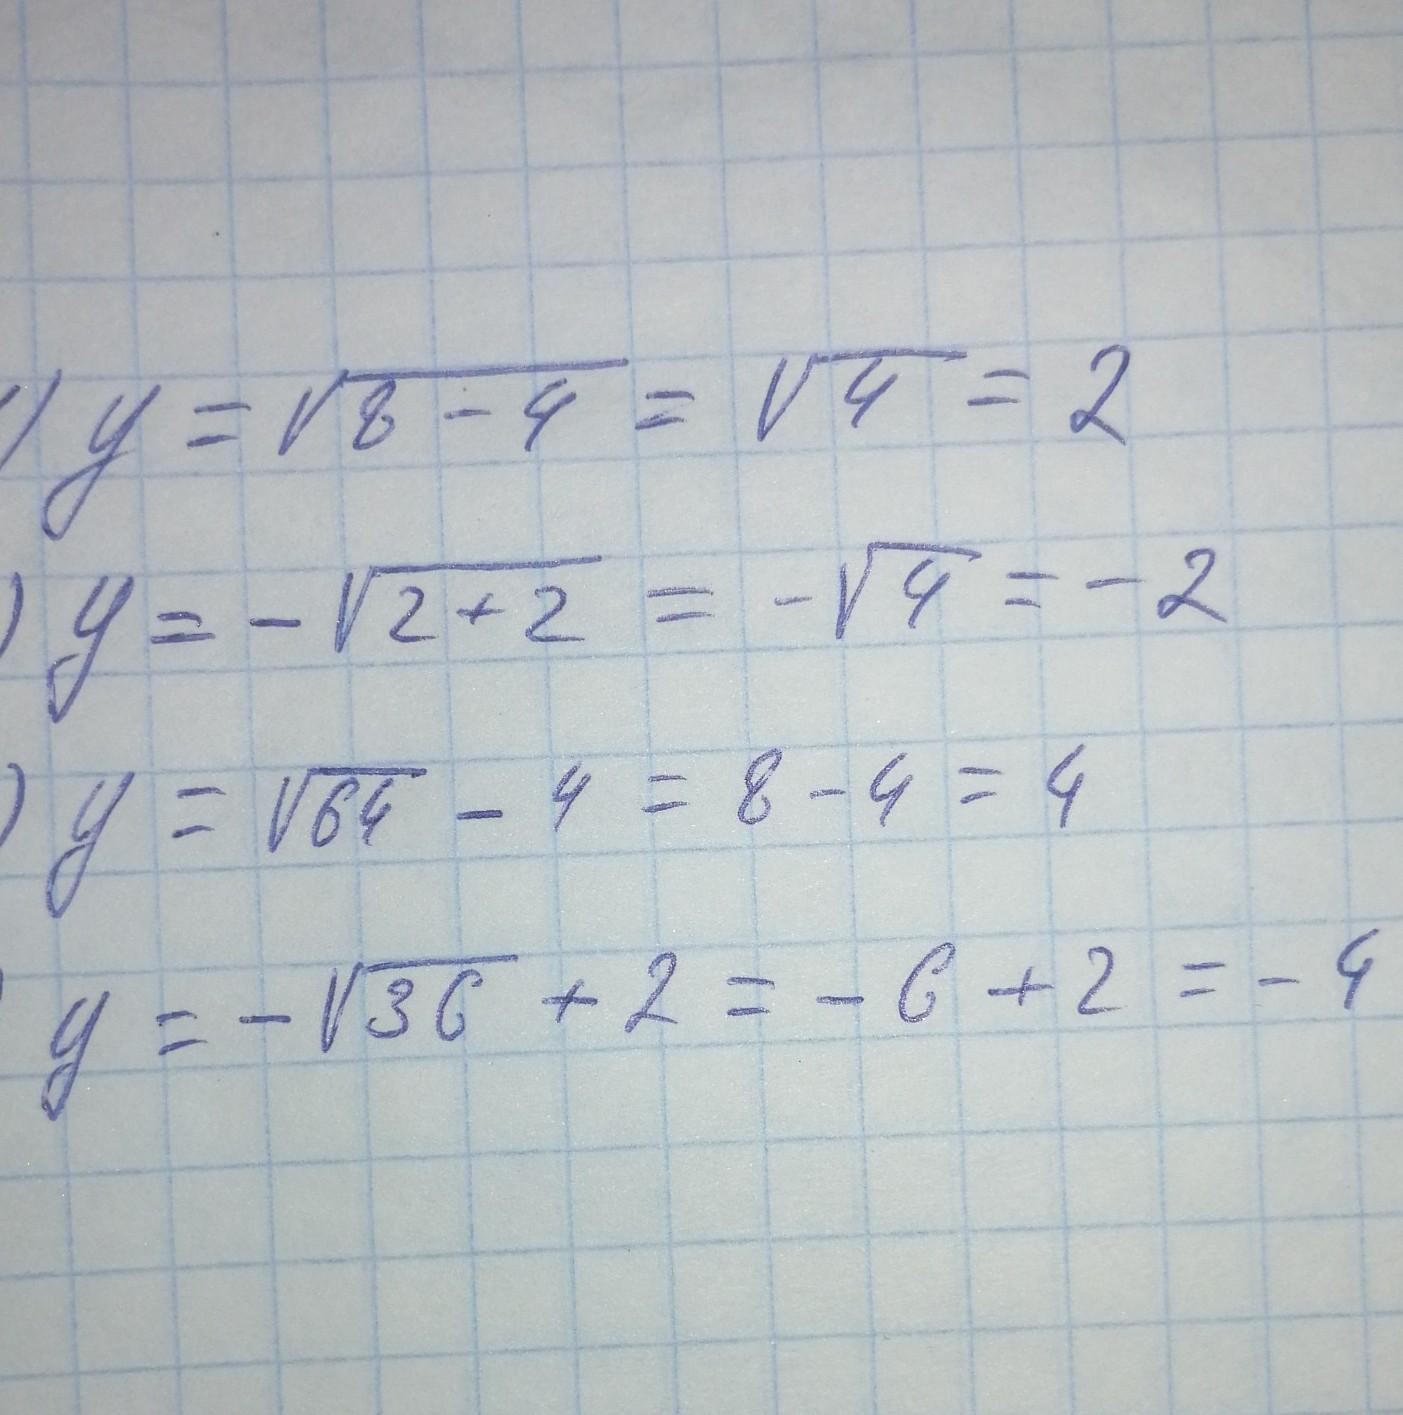 ) y = √8 - 4 = √4 = 2
) y = -√2 + 2 = -√4 = -2
) y = √64 - 4 = 8 - 4 = 4
) y = -√36 + 2 = -6 + 2 = -4